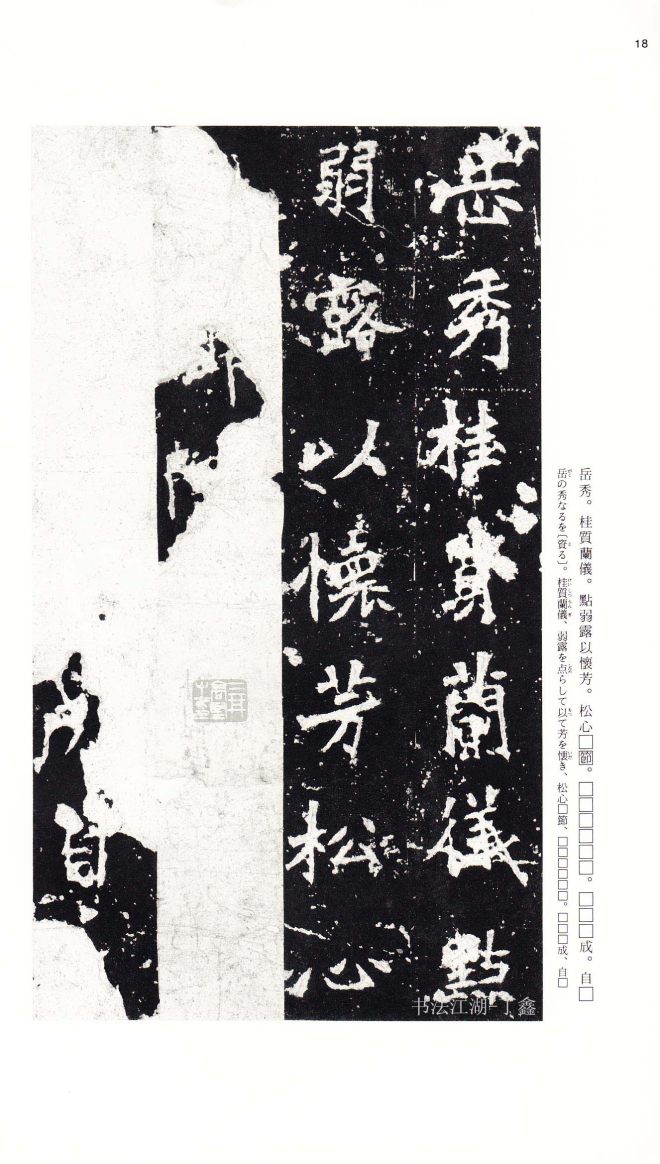 18
岳秀。桂質蘭儀。點弱露以懷芳。松心□節。□□□□□□。□□□成。自□
岳の秀なるを〔資る〕。桂質蘭儀、弱露を点らして以て芳を懐き、松心□節、□□□□□□。□□□成、自□
岳秀桂質蘭儀點
弱露以懷芳松心
節
成自
书法江湖-丁鑫